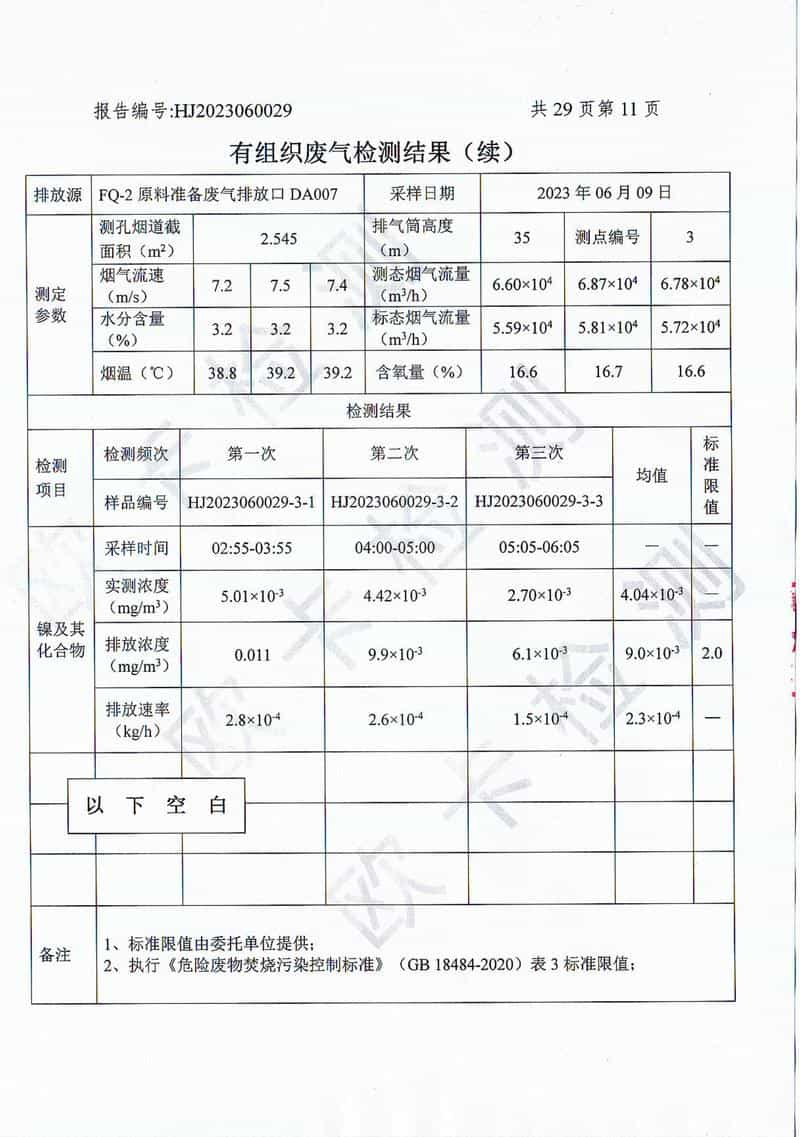 报告编号:HJ2023060029 共 29 页第 11 页
有组织废气检测结果（续）
排放源 FQ-2 原料准备废气排放口 DA007 采样日期 2023 年 06 月 09 日
测定参数
测孔烟道截面积（m²） 2.545 排气筒高度（m） 35 测点编号 3
烟气流速（m/s） 7.2 7.5 7.4 测态烟气流量（m³/h） 6.60×10⁴ 6.87×10⁴ 6.78×10⁴
水分含量（%） 3.2 3.2 3.2 标态烟气流量（m³/h） 5.59×10⁴ 5.81×10⁴ 5.72×10⁴
烟温（℃） 38.8 39.2 39.2 含氧量（%） 16.6 16.7 16.6
检测结果
检测项目 检测频次 第一次 第二次 第三次 均值 标准限值
样品编号 HJ2023060029-3-1 HJ2023060029-3-2 HJ2023060029-3-3
镍及其化合物
采样时间 02:55-03:55 04:00-05:00 05:05-06:05 — —
实测浓度（mg/m³） 5.01×10⁻³ 4.42×10⁻³ 2.70×10⁻³ 4.04×10⁻³ —
排放浓度（mg/m³） 0.011 9.9×10⁻³ 6.1×10⁻³ 9.0×10⁻³ 2.0
排放速率（kg/h） 2.8×10⁻⁴ 2.6×10⁻⁴ 1.5×10⁻⁴ 2.3×10⁻⁴ —
以 下 空 白
备注
1、标准限值由委托单位提供；
2、执行《危险废物焚烧污染控制标准》（GB 18484-2020）表 3 标准限值；
欧卡检测
欧卡检测
欧卡检测